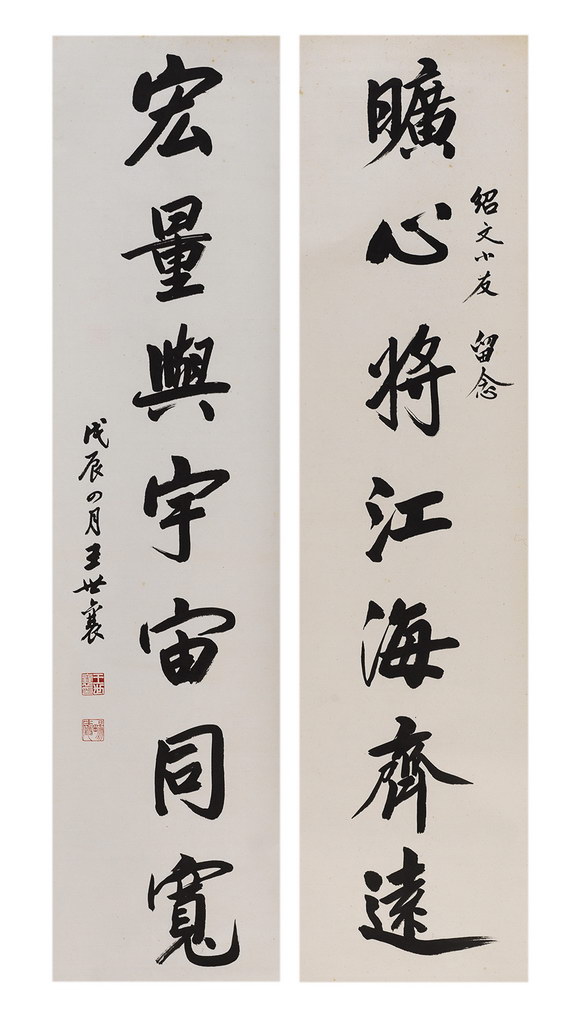 曠心將江海齊遠
紹文小友 留念
宏量與宇宙同寬
戊辰四月王世襄